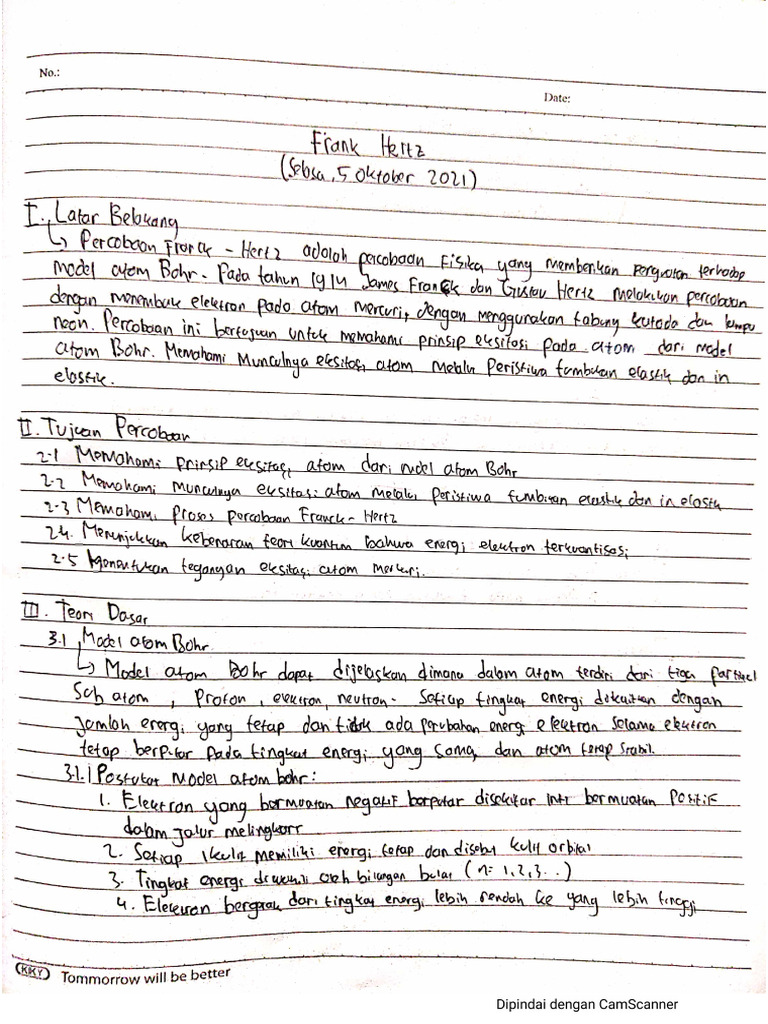 No.:
Date:
Frank Hertz
(Selasa, 5 Oktober 2021)
I. Latar Belakang
↳ Percobaan Franck - Hertz adalah percobaan Fisika yang memberikan penguatan terhadap
model atom Bohr. Pada tahun 1914 James Franck dan Gustav Hertz melakukan percobaan
dengan menembak elektron pada atom mercuri, dengan menggunakan tabung katoda dan lampu
neon. Percobaan ini bertujuan untuk memahami prinsip eksitasi pada atom dari model
atom Bohr. Memahami Munculnya eksitasi atom melalui Peristiwa tumbukan elastik dan in
elastik.
II. Tujuan Percobaan
2.1 Memahami prinsip eksitasi atom dari model atom Bohr
2.2 Memahami munculnya eksitasi atom melalui peristiwa tumbukan elastik dan in elastik
2.3 Memahami proses percobaan Franck - Hertz
2.4. Menunjukkan kebenaran teori kuantum bahwa energi elektron terkuantisasi
2.5 Menentukan tegangan eksitasi atom merkuri.
III. Teori Dasar
3.1 Model atom Bohr
↳ Model atom Bohr dapat dijelaskan dimana dalam atom terdiri dari tiga partikel
Sub atom, Proton, elektron, neutron. Setiap tingkat energi dikaitkan dengan
jumlah energi yang tetap dan tidak ada perubahan energi elektron selama elektron
tetap berputar pada tingkat energi yang sama, dan atom tetap stabil.
3.1.1 Postulat Model atom bohr:
1. Elektron yang bermuatan negatif berputar disekitar inti bermuatan positif
dalam jalur melingkar
2. Setiap kulit memiliki energi tetap dan disebut kulit orbital
3. Tingkat energi diwakili oleh bilangan bulat (n= 1,2,3...)
4. Elektron bergerak dari tingkat energi lebih rendah ke yang lebih tinggi
KKY Tommorrow will be better
Dipindai dengan CamScanner